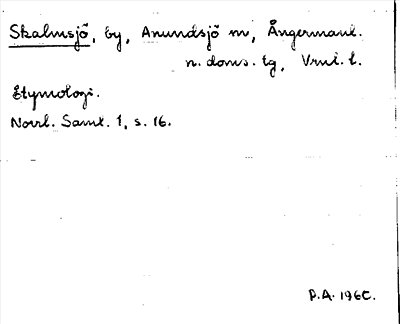 Skalmsjö, by, Anundsjö m, Ångermanl.
n. doms. tg, Vrnl. l.
Etymologi.
Norrl. Saml. 1, s. 16.
P.A. 1960.